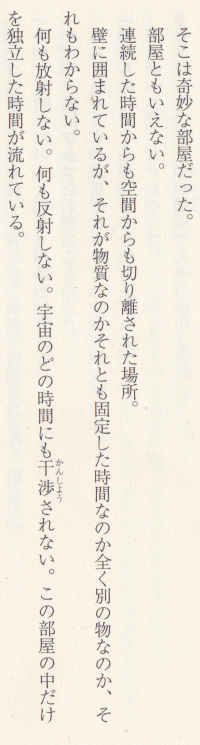 そこは奇妙な部屋だった。
部屋ともいえない。
連続した時間からも空間からも切り離された場所。
壁に囲まれているが、それが物質なのかそれとも固定した時間なのか全く別の物なのか、そ
れもわからない。
何も放射しない。何も反射しない。宇宙のどの時間にも干渉されない。この部屋の中だけ
かんしょう
を独立した時間が流れている。